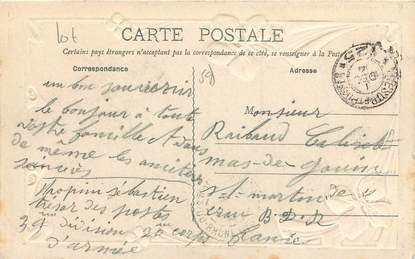 lot
CARTE POSTALE
Certains pays étrangers n'acceptant pas la correspondance de ce côté, se renseigner à la Poste
Correspondance
Adresse
59
un bon souvenir
le bonjour à toute
votre famille
de même les amities
sincères
Popinin sébastien
trésor des postes
39 division 20 corps
d'armée
Monsieur
Raibaud
mas de gouin
St martin de
crau B.D.R
france